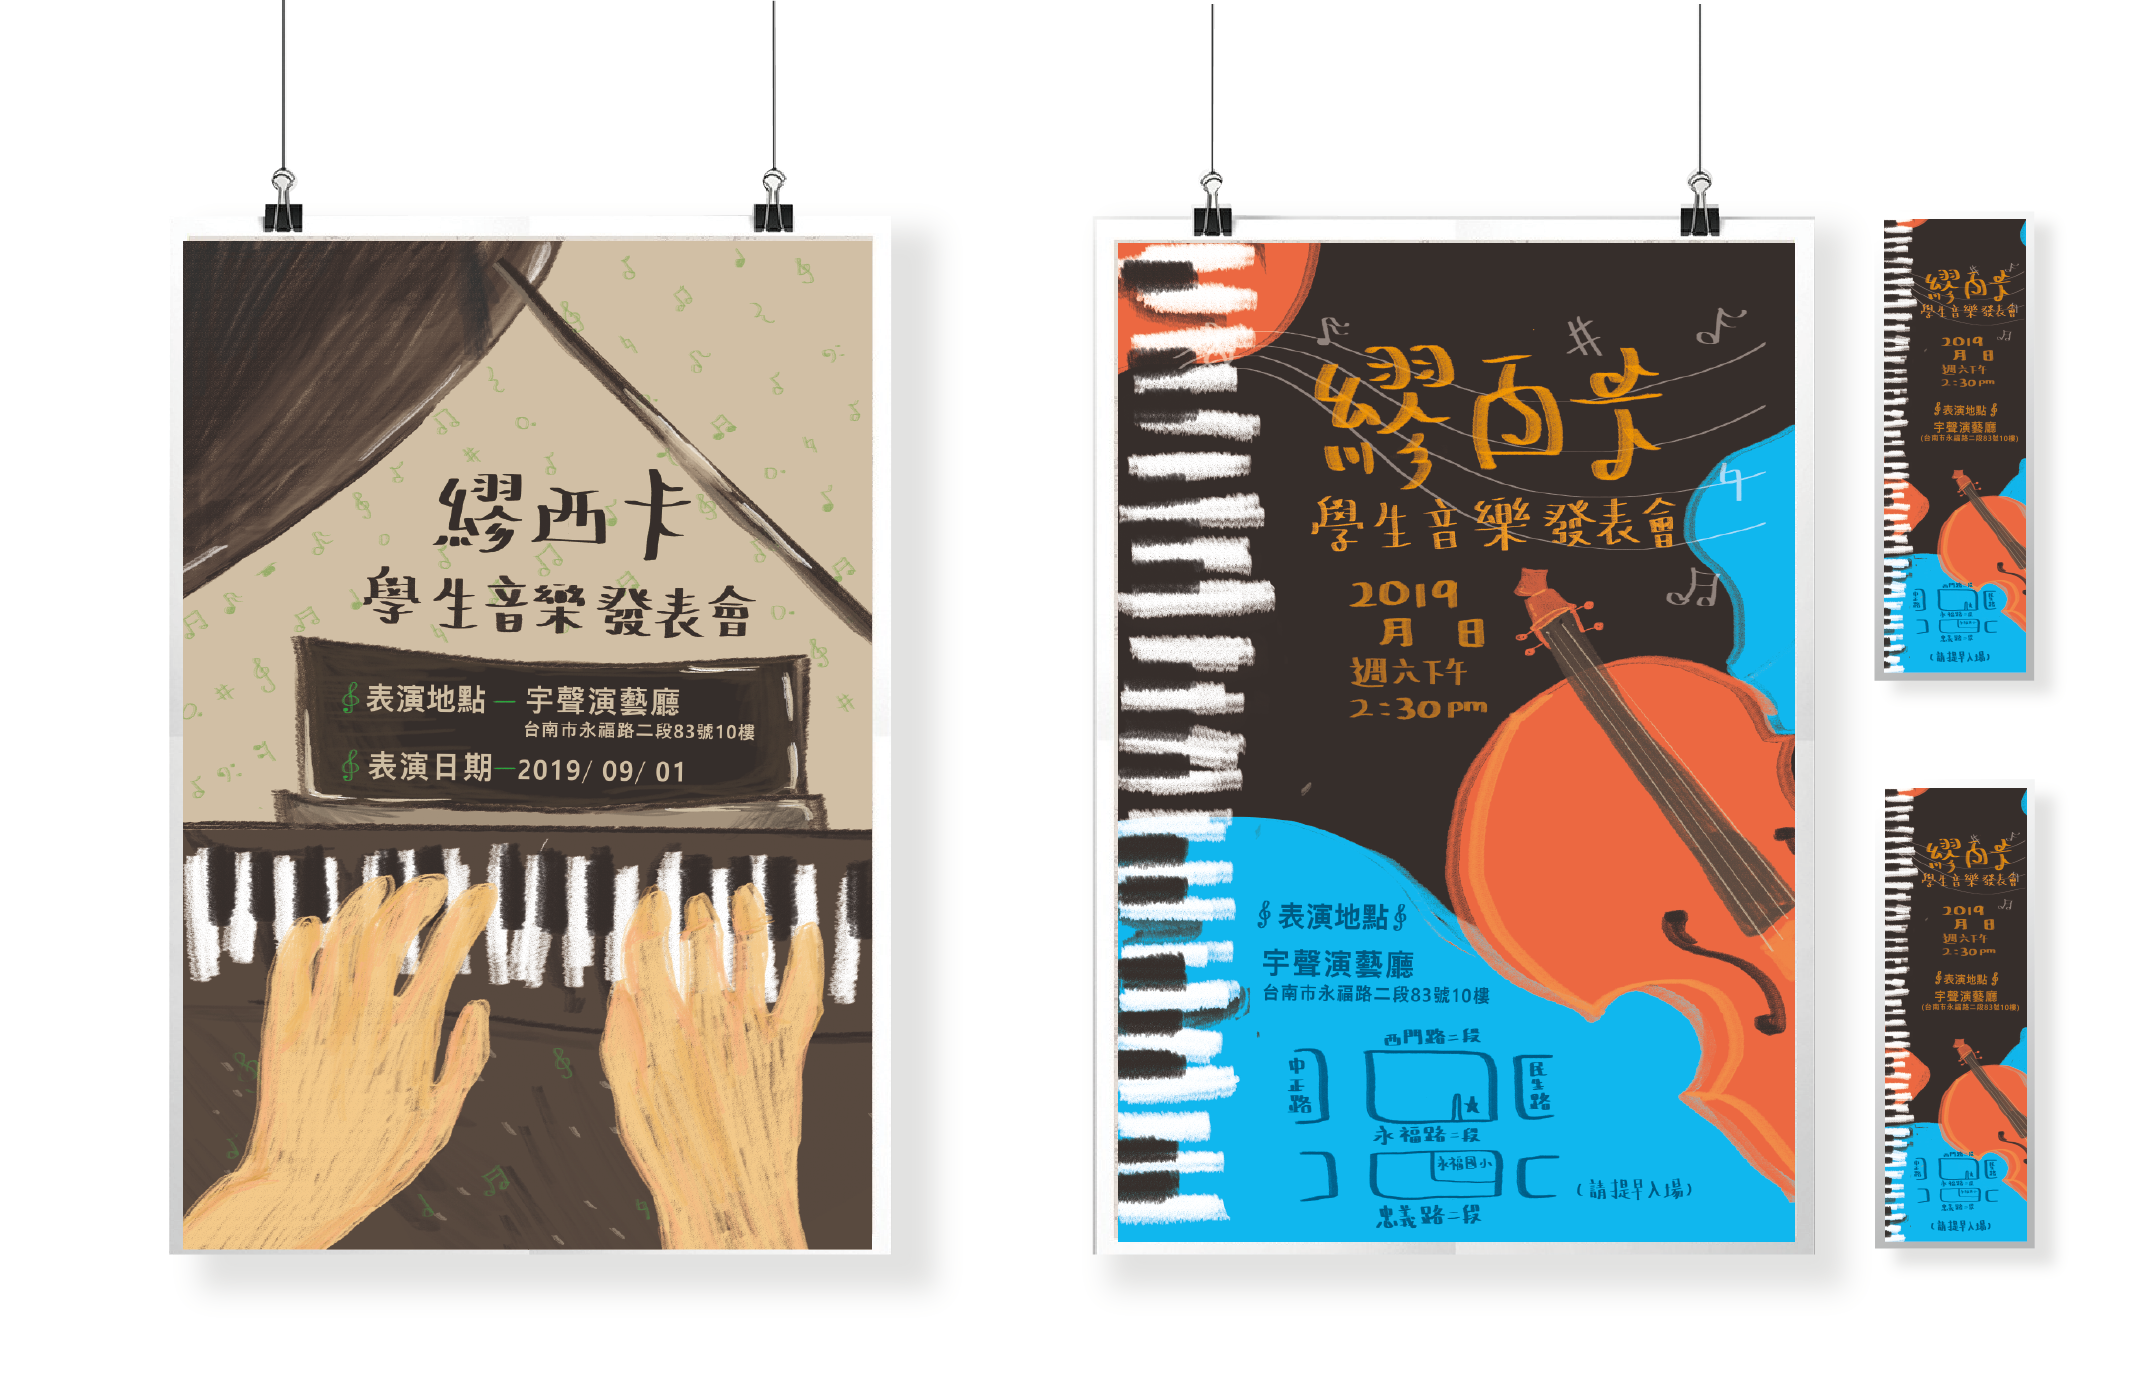 繆西卡
學生音樂發表會
表演地點—宇聲演藝廳
台南市永福路二段83號10樓
表演日期—2019/ 09/ 01
繆西卡
學生音樂發表會
2019
月 日
週六下午
2:30pm
表演地點
宇聲演藝廳
台南市永福路二段83號10樓
西門路二段
中正路
民生路
永福路二段
永福國小
忠義路二段
(請提早入場)
繆西卡
學生音樂發表會
2019
月 日
週六下午
2:30pm
表演地點
宇聲演藝廳
(台南市永福路二段83號10樓)
西門路二段
永福路二段
忠義路二段
(請提早入場)
繆西卡
學生音樂發表會
2019
月 日
週六下午
2:30pm
表演地點
宇聲演藝廳
(台南市永福路二段83號10樓)
西門路二段
永福路二段
忠義路二段
(請提早入場)